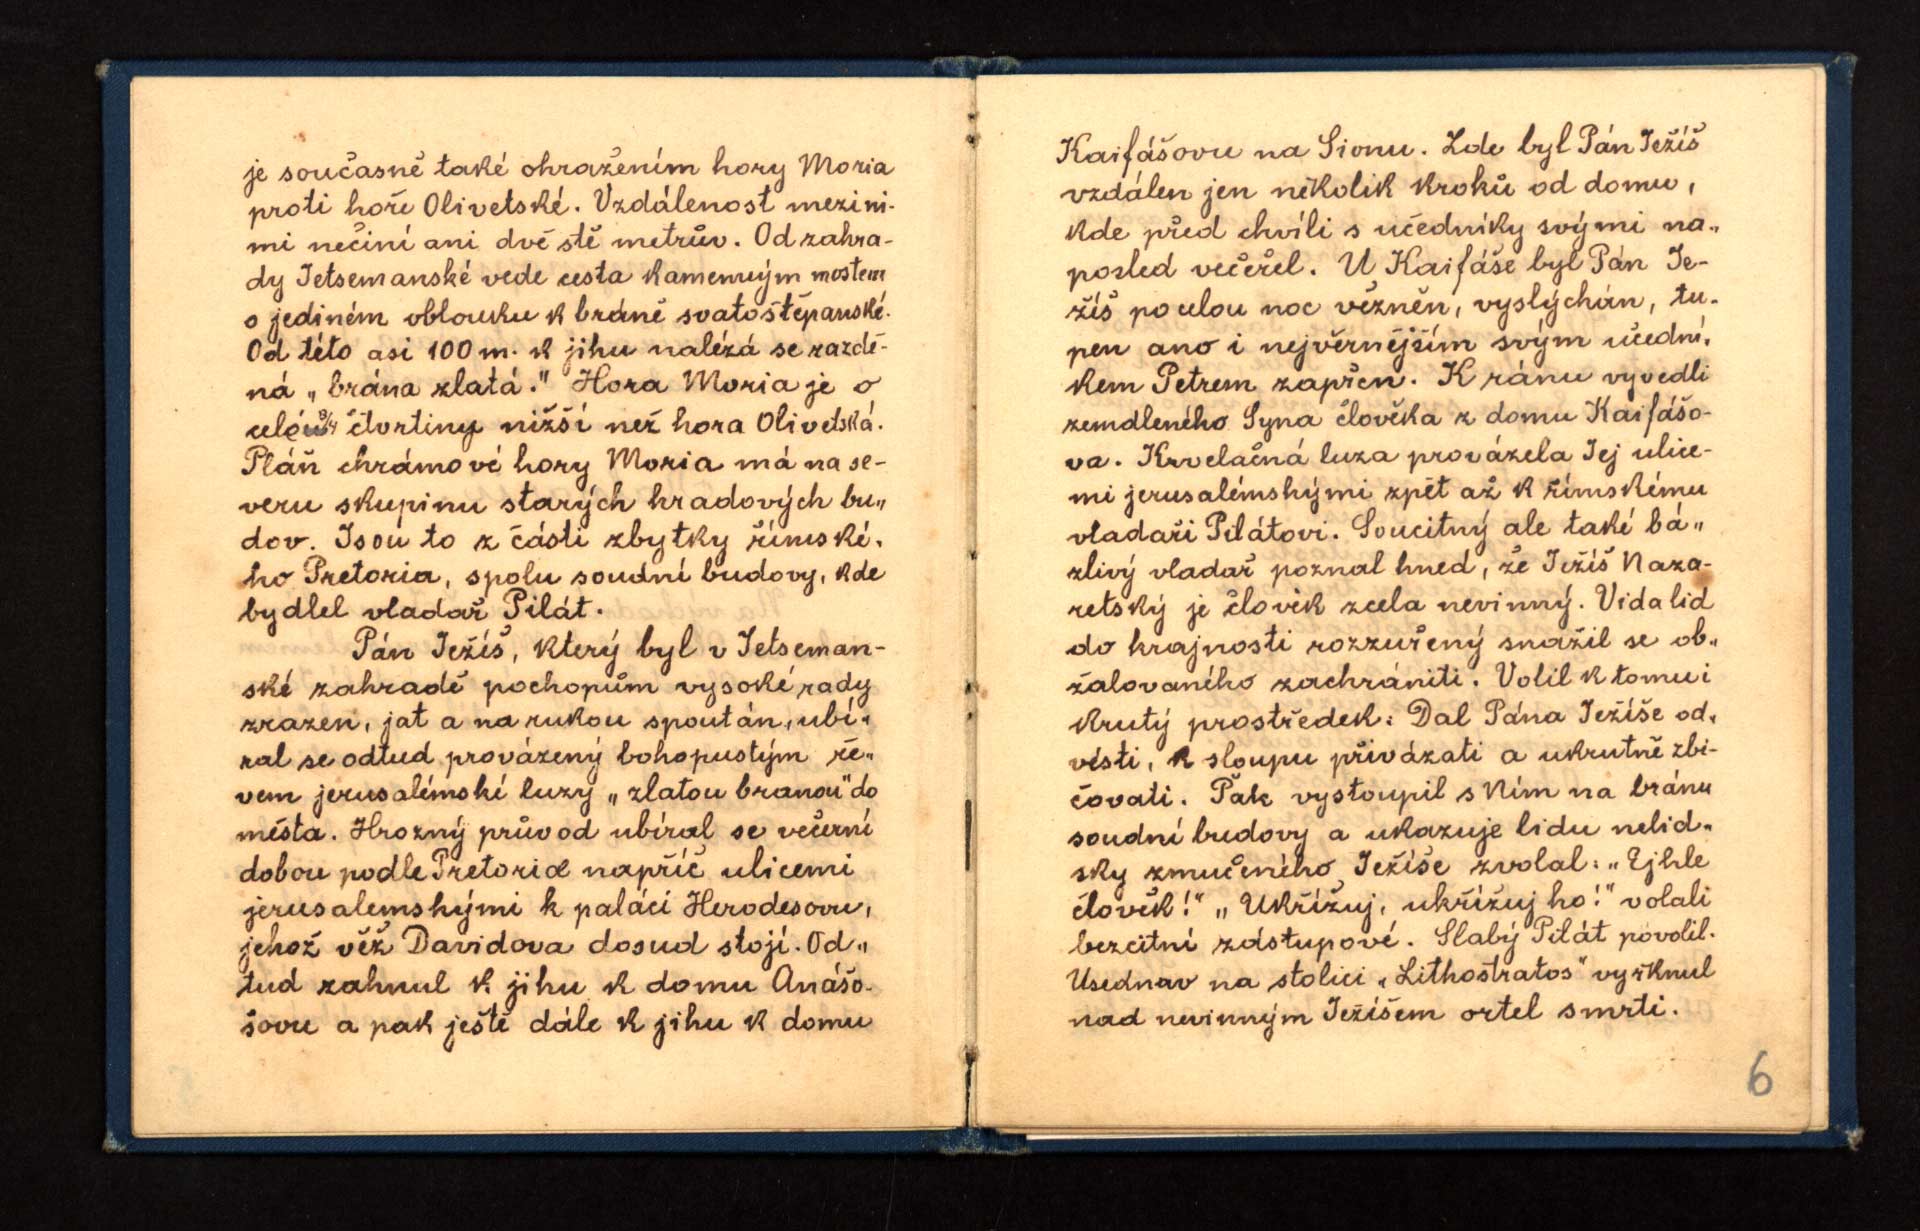 je současně také ohražením hory Moria
proti hoře Olivetské. Vzdálenost mezi ni-
mi nečiní ani dvě stě metrův. Od zahra-
dy Jetsemanské vede cesta kamenným mostem
o jediném oblouku k bráně svatoštěpanské.
Od této asi 100 m. k jihu nalézá se zazdě-
ná „brána zlatá." Hora Moria je o
čtvrtiny nižší než hora Olivetská.
Pláň chrámové hory Moria má na se-
veru skupinu starých hradových bu„
dov. Jsou to z části zbytky římské-
ho Pretoria, spolu soudní budovy, kde
bydlel vladař Pilát.
Pán Ježíš, který byl v Jetseman-
ské zahradě pochopům vysoké rady
zrazen, jat a na rukou spoután, ubí-
ral se odtud provázený bohopustým ře„
vem jerusalémské luzy „zlatou branou" do
města. Hrozný průvod ubíral se večerní
dobou podle Pretoria napříč ulicemi
jerusalemskými k paláci Herodesovu,
jehož věž Davidova dosud stojí. Od„
tud zahnul k jihu k domu Anášo-
šovu a pak ještě dále k jihu k domu
Kaifášovu na Sionu. Zde byl Pán Ježíš
vzdálen jen několik kroků od domu,
kde před chvíli s učedníky svými na„
posled večeřel. U Kaifáše byl Pán Je-
žíš po celou noc vězněn, vyslýchán, tu-
pen ano i nejvěrnějším svým učední-
kem Petrem zapřen. K ránu vyvedli
zemdleného Syna člověka z domu Kaifášo-
va. Krvelačná luza provázela Jej ulice-
mi jerusalémskými zpět až k římskému
vladaři Pilátovi. Soucitný ale také bá„
zlivý vladař poznal hned, že Ježíš Naza-
retský je člověk zcela nevinný. Vida lid
do krajnosti rozzuřený snažil se ob„
žalovaného zachrániti. Volil k tomu i
krutý prostředek: Dal Pána Ježíše od-
vésti, k sloupu přivázati a ukrutně zbi-
čovati. Pak vystoupil s Ním na bránu
soudní budovy a ukazuje lidu nelid-
sky zmučeného Ježíše zvolal: „Ejhle
člověk!" „Ukřižuj, ukřižuj ho!" volali
bezcitní zástupové. Slabý Pilát povolil.
Usednav na stolici „Lithostratos" vyřknul
nad nevinným Ježíšem ortel smrti.
6